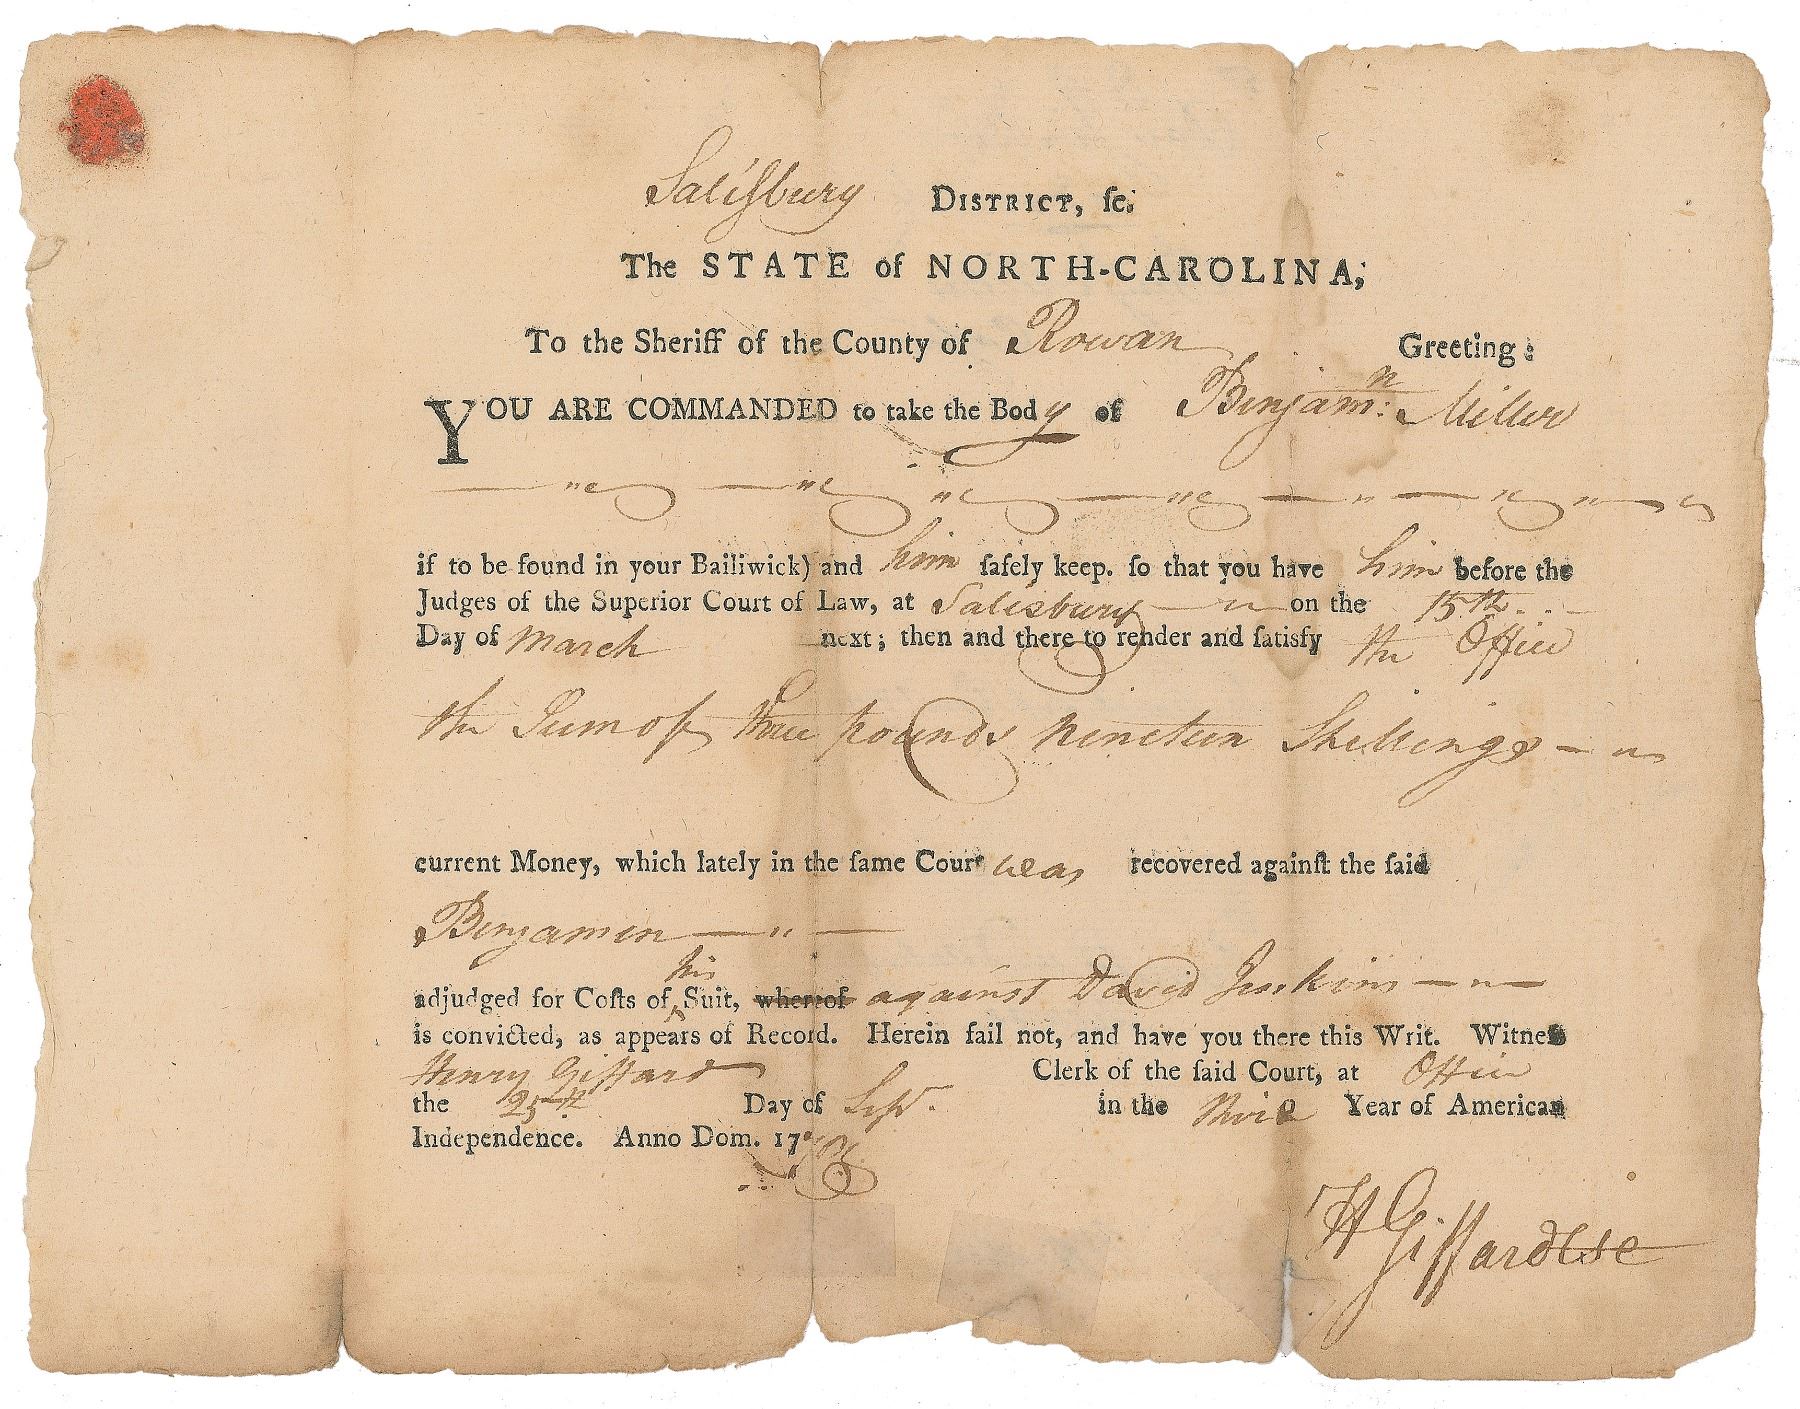 Saliſbury DISTRICT, ſc.
The STATE of NORTH-CAROLINA;
To the Sheriff of the County of Rowan Greeting:
YOU ARE COMMANDED to take the Body of Benjamn: Miller
if to be found in your Bailiwick) and him ſafely keep. ſo that you have him before the
Judges of the Superior Court of Law, at Salisbury on the 15th
Day of March next; then and there to render and ſatisfy the Office
the Sum of three pounds nineteen Shillings
current Money, which lately in the ſame Court was recovered againſt the ſaid
Benjamin
his
adjudged for Coſts of ‸ Suit, whereof against David Jenkins
is convicted, as appears of Record. Herein fail not, and have you there this Writ. Witneſs
Henry Giffard Clerk of the ſaid Court, at Office
the 25th Day of Sepr. in the Year of American
Independence. Anno Dom. 17
H Giffard CSC